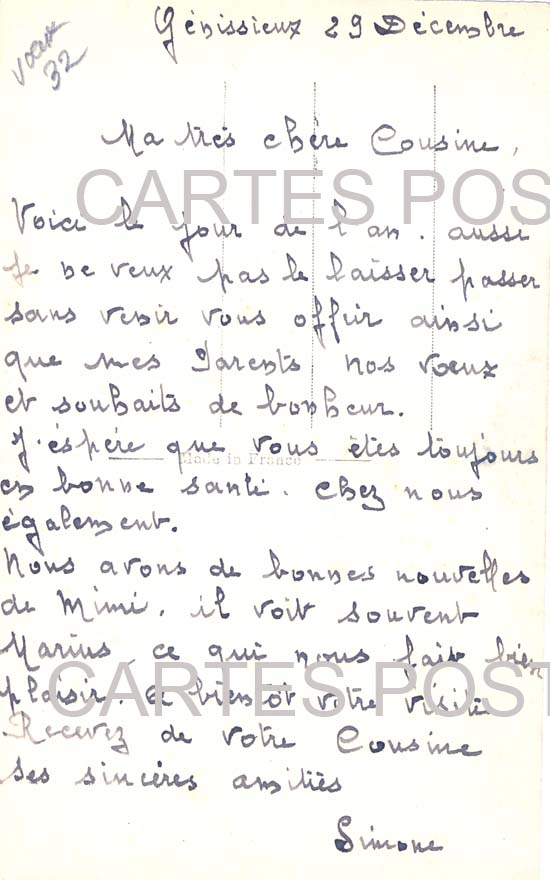 Génissieux 29 Décembre
Voeux
32
Ma très chère Cousine,
CARTES POST
Voici le jour de l'an. aussi
je ne veux pas le laisser passer
sans venir vous offrir ainsi
que mes Parents nos voeux
et souhaits de bonheur.
J'éspère que vous êtes toujours
Made in France
en bonne santé. chez nous
également.
Nous avons de bonnes nouvelles
de Mimi. il voit souvent
Marius, ce qui nous fait bien
CARTES POST
plaisir. a bientôt votre visite
Recevez de votre Cousine
ses sincères amitiès
Simone